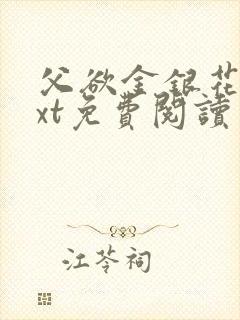 父欲金銀花
xt免費閱讀
江苓祠